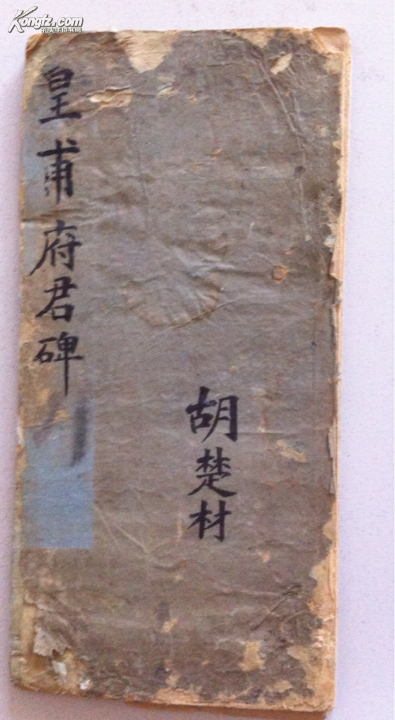 Kongfz.com
皇甫府君碑
胡楚材